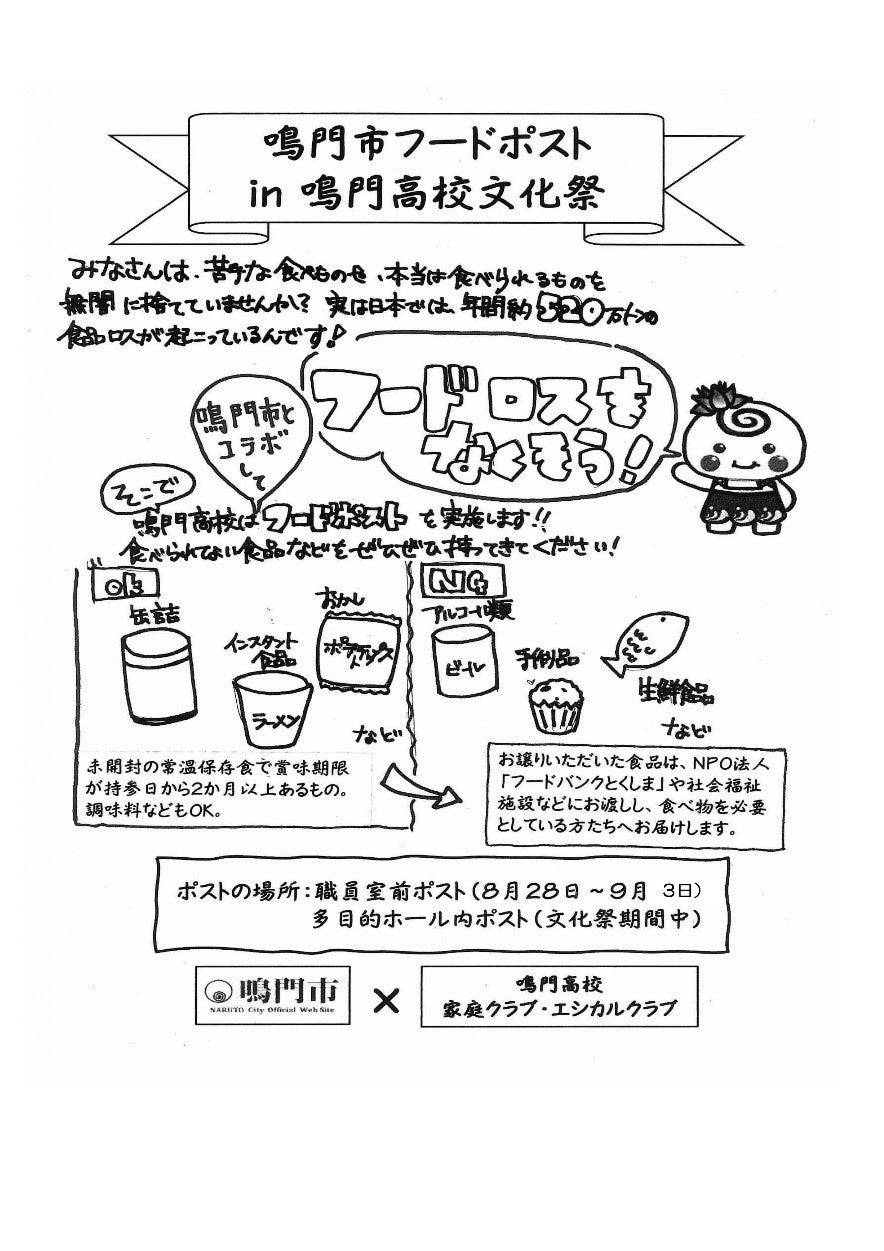 鳴門市フードポスト
in 鳴門高校文化祭
みなさんは、苦手な食べものや、本当は食べられるものを
無闇に捨てていませんか？ 実は日本では、年間約520万トンの
食品ロスが起こっているんです！
鳴門市と
コラボ
して
フードロスを
なくそう！
そこで
鳴門高校はフードポストを実施します!!
食べられない食品などをぜひぜひ持ってきてください！
OK
缶詰
インスタント
食品
ラーメン
おかし
ポテトチップス
など
未開封の常温保存食で賞味期限
が持参日から2か月以上あるもの。
調味料などもOK。
NG
アルコール類
ビール
手作り品
生鮮食品
など
お譲りいただいた食品は、NPO法人
「フードバンクとくしま」や社会福祉
施設などにお渡しし、食べ物を必要
としている方たちへお届けします。
ポストの場所：職員室前ポスト（8月28日～9月 3日）
多目的ホール内ポスト（文化祭期間中）
鳴門市
NARUTO City Official Web Site
×
鳴門高校
家庭クラブ・エシカルクラブ